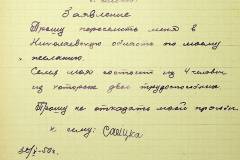 Заявление
Прошу переселить меня в
Николаевскую область по моему
желанию.
Семья моя состоит из 4 человек
из которых двое трудоспособных
Прошу не отказать моей просьбы.
к сему: